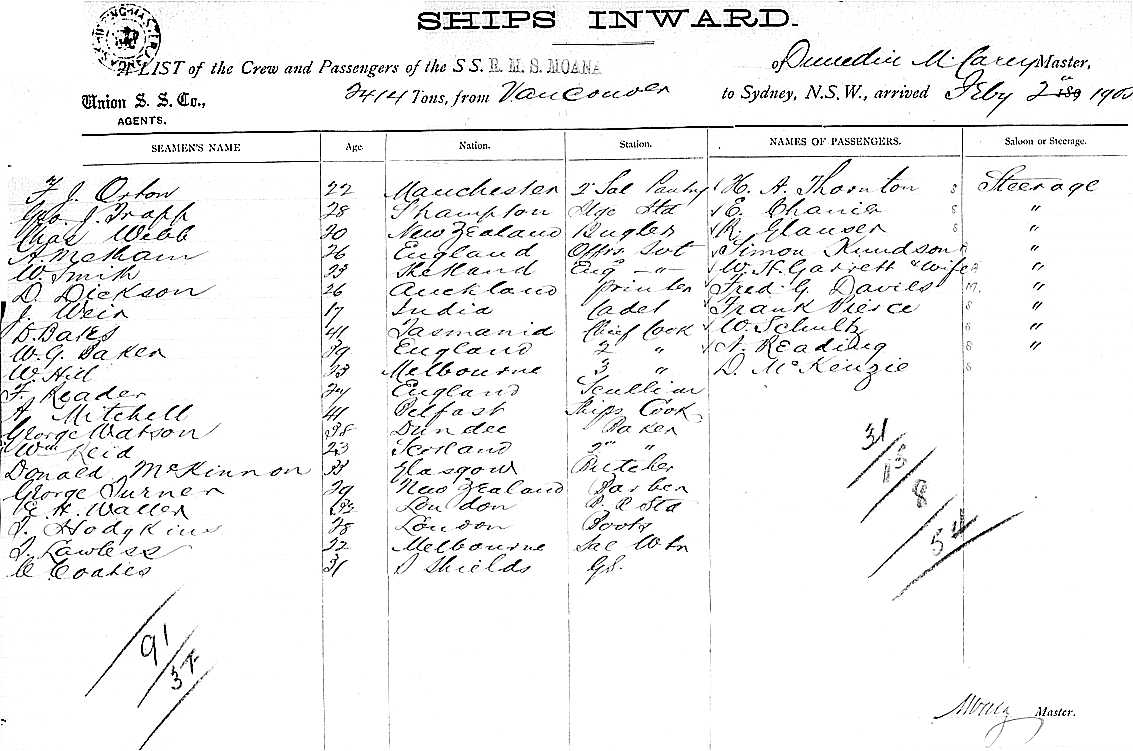 SHIPS INWARD.
A LIST of the Crew and Passengers of the S S. R. M. S. MOANA of Dunedin M. Carey Master,
Union S. S. Co., 2414 Tons, from Vancouver to Sydney, N.S.W., arrived Feby 2nd 189 1900
AGENTS.
SEAMEN'S NAME Age. Nation. Station. NAMES OF PASSENGERS. Saloon or Steerage.
F. J. Orton 22 Manchester 2 Sal Pantry H. A. Thornton s Steerage
Geo J. Trapp 28 S'hampton Stge Std E. Chanier s "
Chas Webb 20 New Zealand Bugler R. Glauser s "
A. Metham 26 England Offrs Svt Simon Knudson "
W. Smith 23 Shetland Eng " W. H. Garrett & wife "
D. Dickson 26 Auckland Printer Fred G. Davies M. "
J. Weir 17 India Cadet Frank Pierce s "
D. Bates 41 Tasmania Chief Cook W. Schultz s "
W. G. Baker 39 England 2 " N. Reading s "
W. Hill 23 Melbourne 3 " D. McKenzie s
F. Reader 24 England Scullion
A. Mitchell 41 Belfast Ships Cook
George Watson 38 Dundee Baker
Wm Reid 23 Scotland 2nd "
Donald McKinnon 33 Glasgow Butcher
George Turner 29 New Zealand Barber
E. H. Waller London Std
J. Hodgkins 28 London Boots
J. Lawless 22 Melbourne Sal Wtr
C Coates 31 S Shields G.S.
31
13
8
54
91
37
Master.